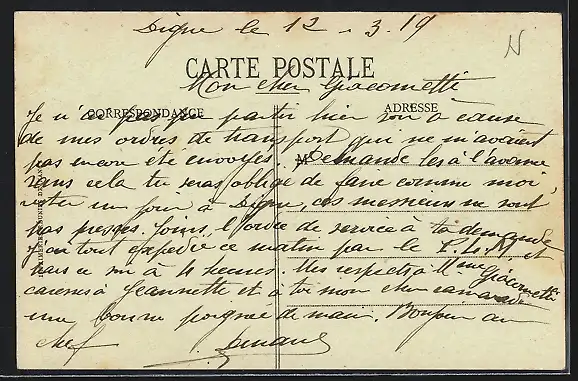 Digne le 12 - 3. 19
N
CARTE POSTALE
Mon cher Giacometti
CORRESPONDANCE
ADRESSE
Je n'ai pas pu partir hier soir à cause
de mes ordres de transport qui ne m'avaient
pas encore été envoyés. Demande les à l'avance
sans cela tu seras obligé de faire comme moi,
rester un jour à Digne, ces messieurs ne sont
pas pressés. Joins l'ordre de service à ta demande
J'ai tout expédié ce matin par le P.L.M. et
pars ce soir à 4 heures. Mes respects à Mme Giacometti
caresses à Jeannette et à toi mon cher camarade
une bonne poignée de main. Bonjour au
chef